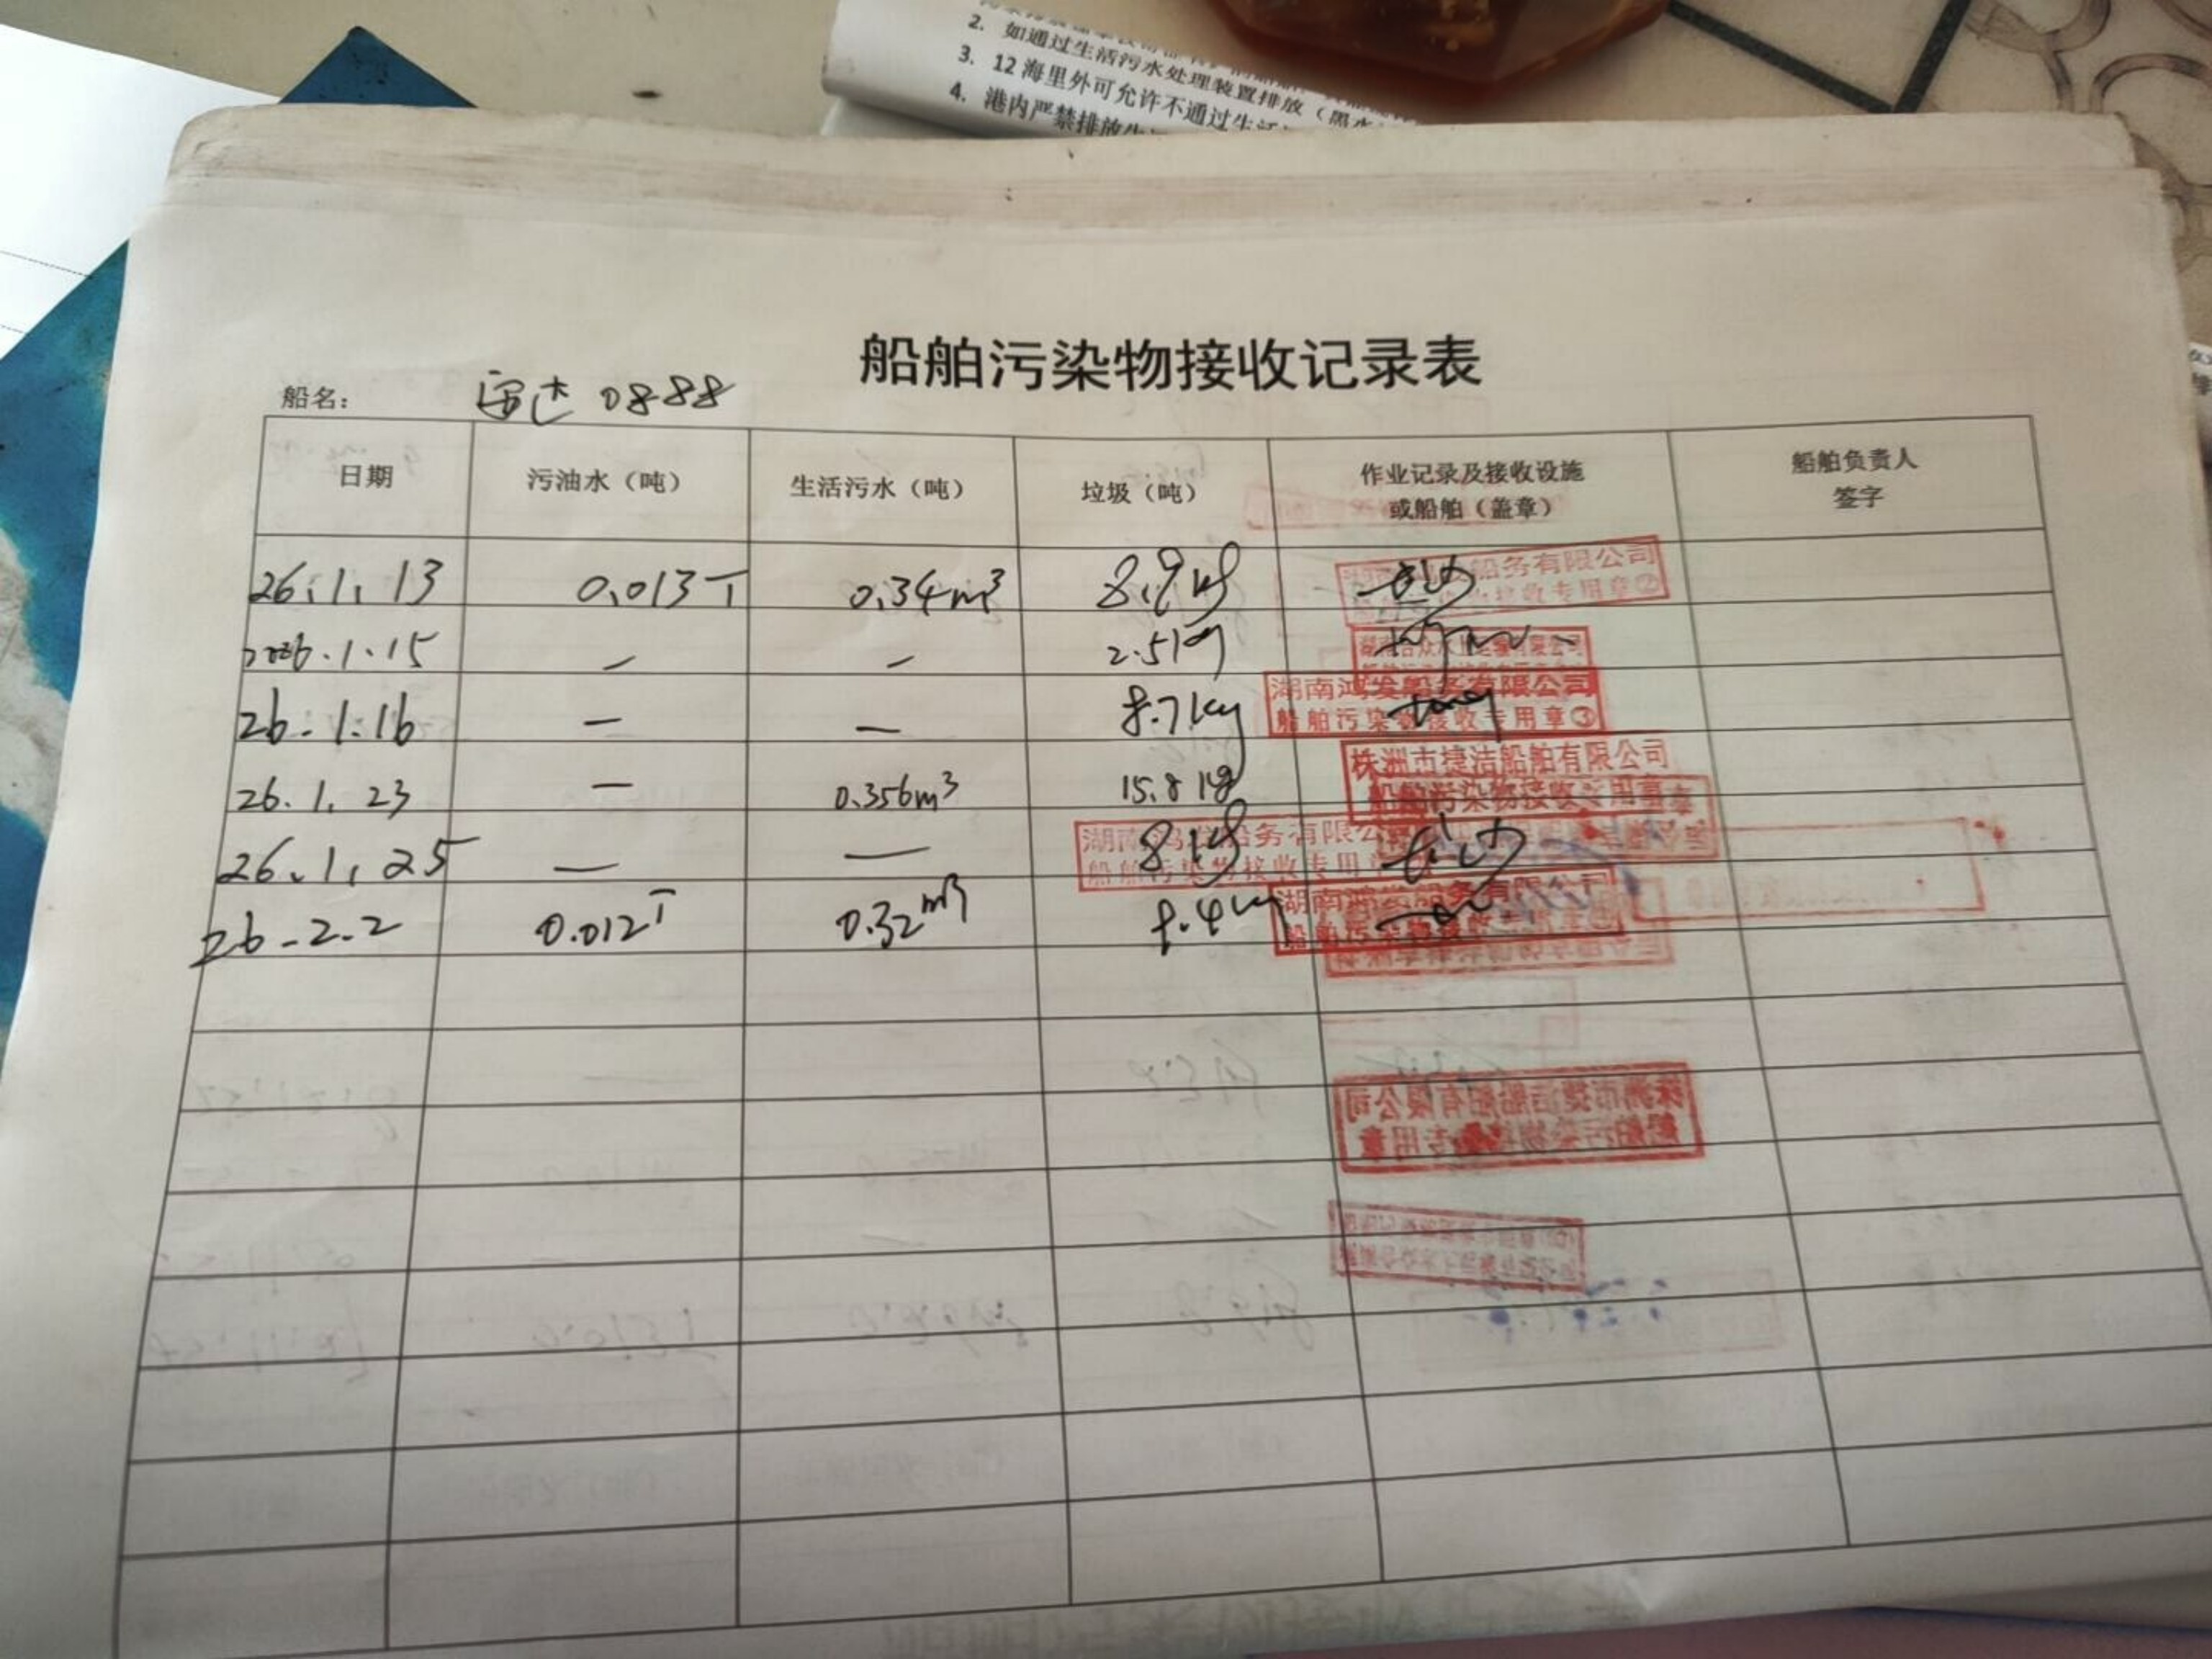 2. 如通过生活污水处理装置排放（黑水
3. 12海里外可允许不通过生活
4. 港内严禁排放生
船舶污染物接收记录表
船名： 0888
日期 污油水（吨） 生活污水（吨） 垃圾（吨） 作业记录及接收设施或船舶（盖章） 船舶负责人签字
26.1.13 0.013T 0.34m³ 8.9kg 长沙 船务有限公司 接收专用章②
2026.1.15 — — 2.51kg
26.1.16 — — 8.7kg 湖南鸿发船务有限公司 船舶污染物接收专用章③
26.1.23 — 0.356m³ 15.8kg 株洲市捷洁船舶有限公司 船舶污染物接收专用章
26.1.25 — — 8kg 长沙 湖南鸿发船务有限公 船舶污染物接收专用章
26-2-2 0.012T 0.32m³ 8.4kg 湖南鸿发船务有限公司
株洲市捷洁船舶有限公司
船舶污染物接收专用章